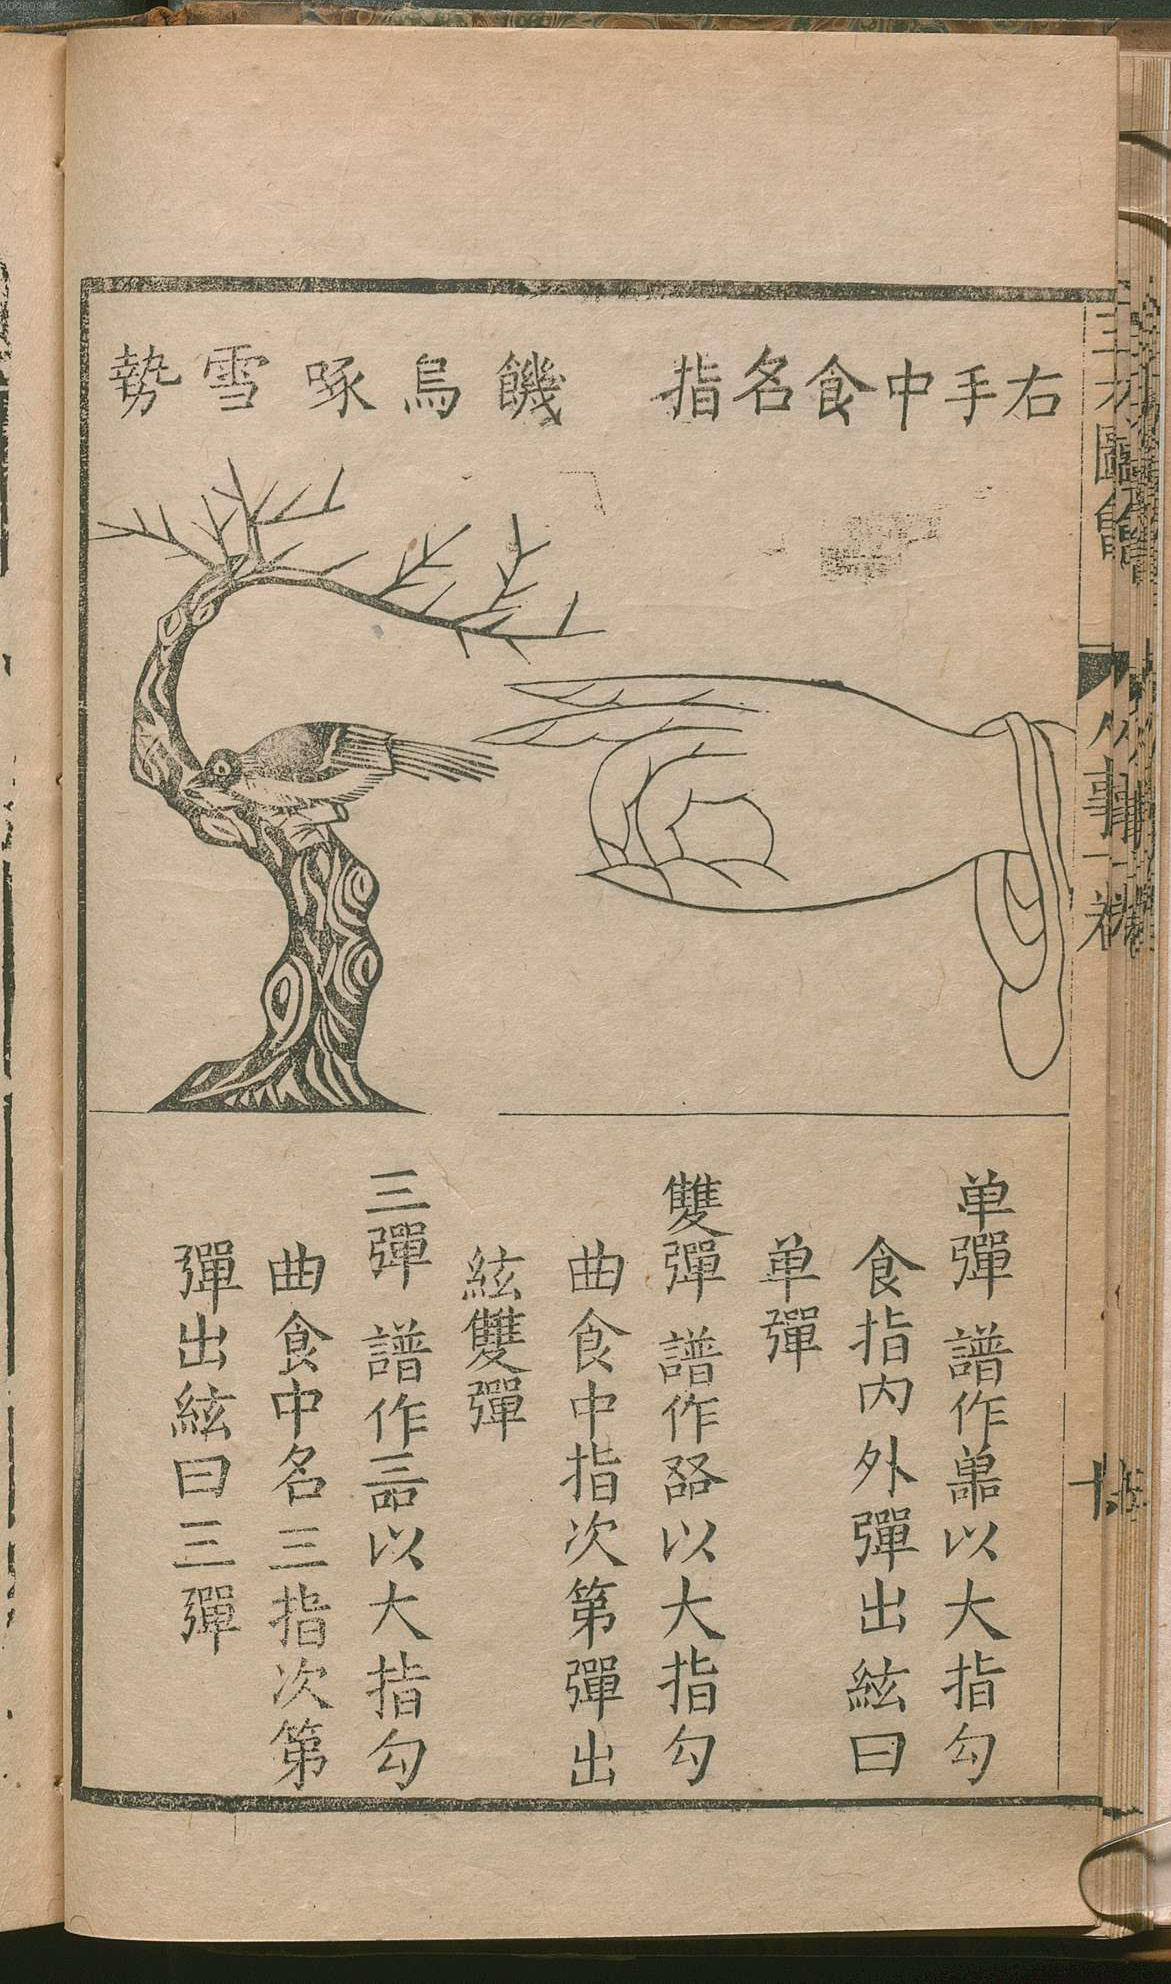 右手中食名指　饑烏啄雪勢
单彈　譜作𠻮以大指勾
食指內外彈出絃曰
单彈
雙彈　譜作以大指勾
曲食中指次第彈出
絃雙彈
三彈　譜作以大指勾
曲食中名三指次第
彈出絃曰三彈
三才圖會
人事一卷